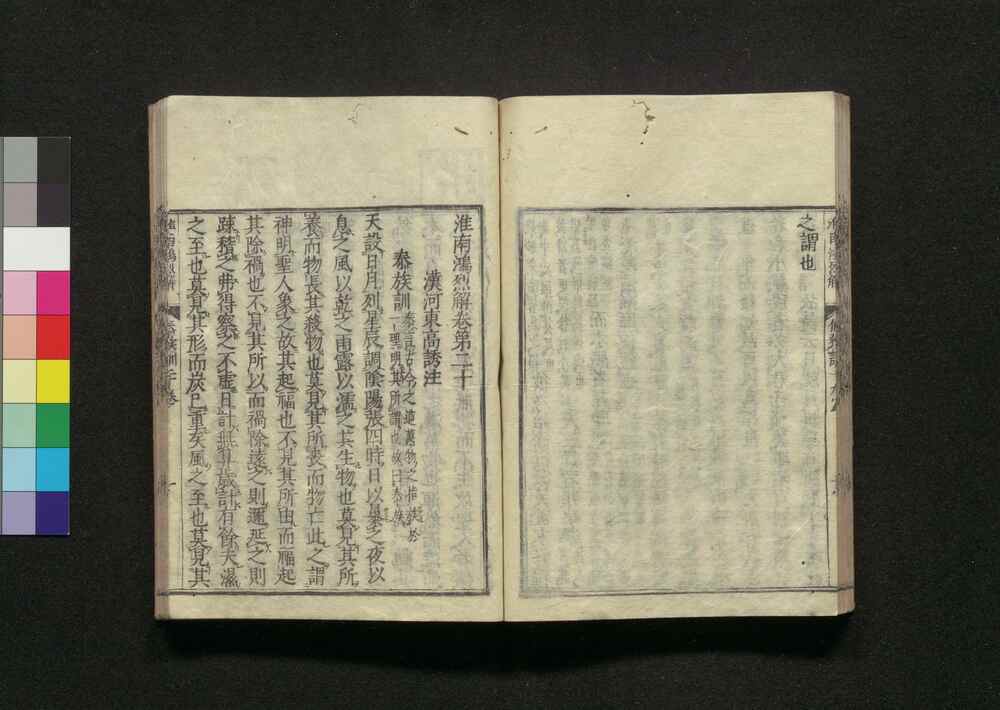 之謂也
淮南鴻烈解卷第二十
漢河東高誘注
泰族訓
泰言古今之道萬物之指族於
一理明其所謂也故曰泰族
天設日月列星辰調陰陽張四時日以暴之夜以
息之風以乾之雨露以濡之其生物也莫見其所
養而物長其殺物也莫見其所喪而物亡此之謂
神明聖人象之故其起福也不見其所由而福起
其除禍也不見其所以而禍除遠之則邇延之則
疎稽之弗得察之不虛日計無算歲計有餘夫濕
之至也莫見其形而炭已重矣風之至也莫見其